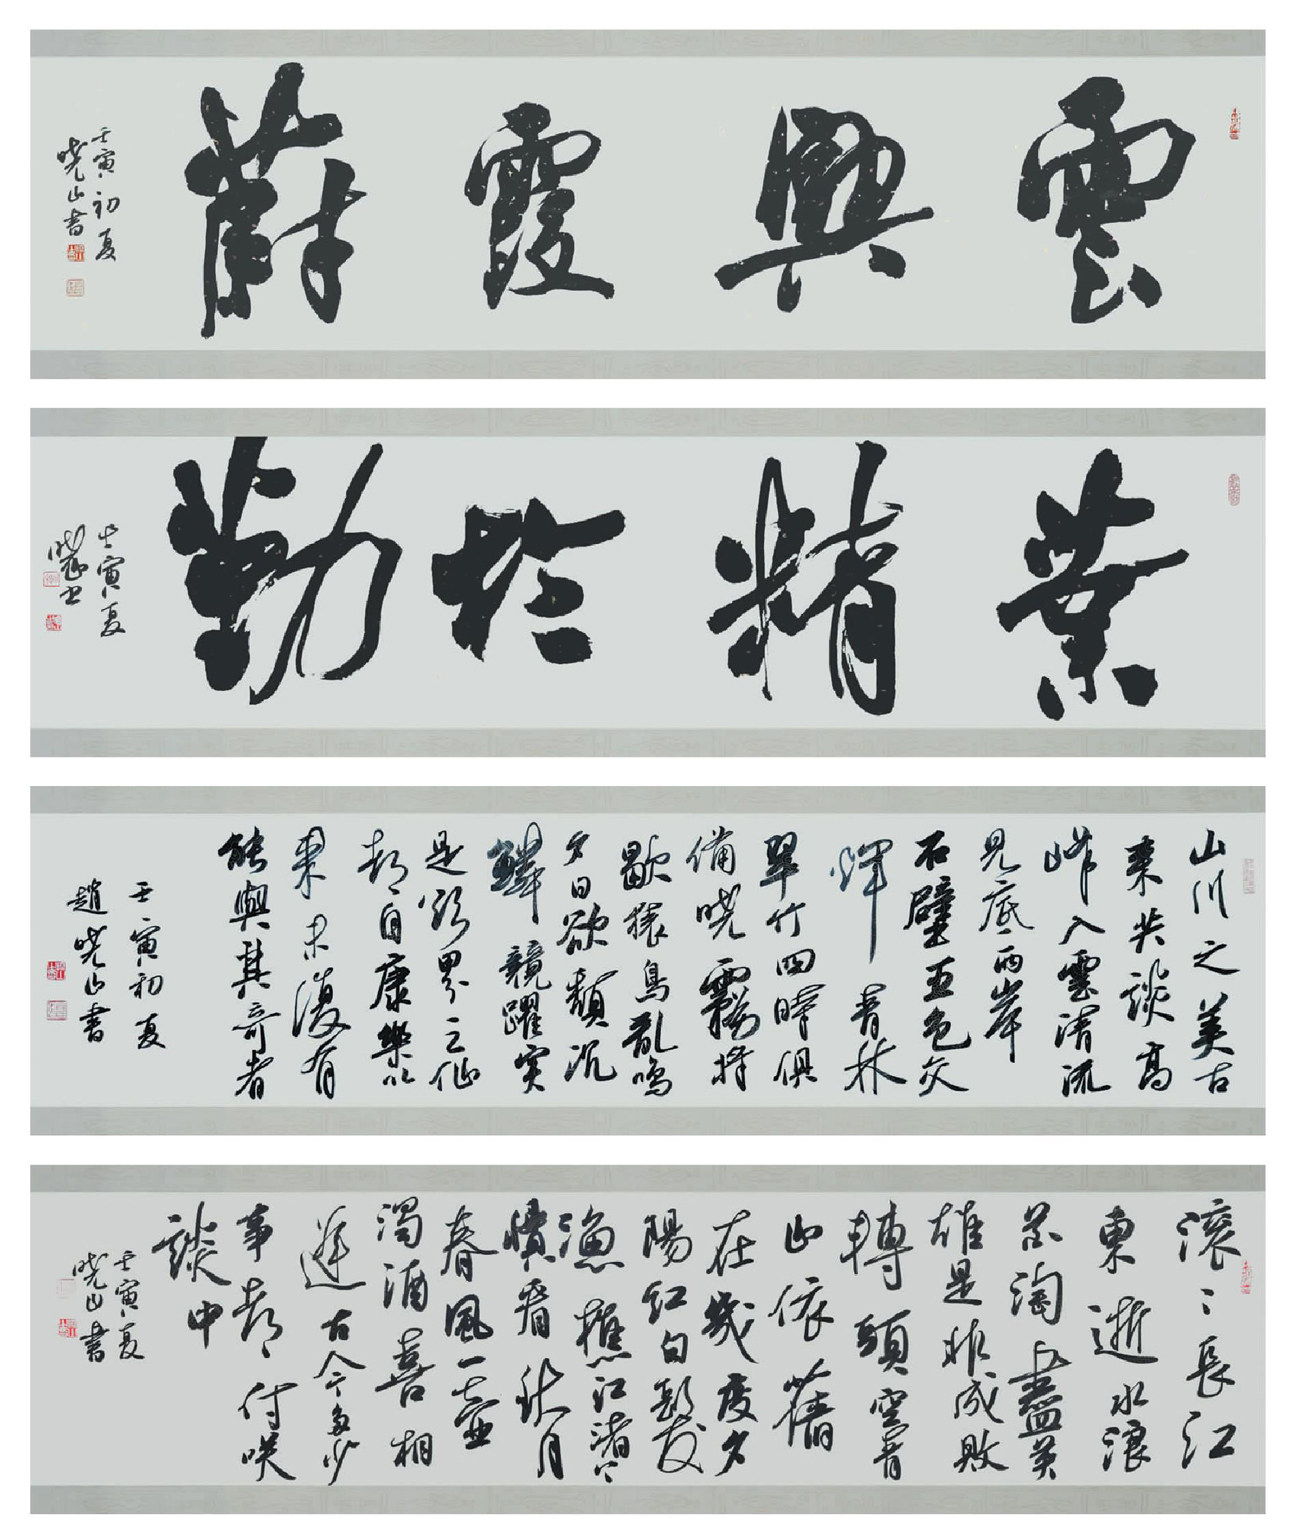 雲興霞蔚
壬寅初夏
曉山書
業精於勤
壬寅夏
曉山書
山川之美古
來共談高
峰入雲清流
見底兩岸
石壁五色交
輝青林
翠竹四時俱
備曉霧將
歇猿鳥亂鳴
夕日欲頹沉
鱗競躍實
是欲界之仙
都自康樂以
來未復有
能與其奇者
壬寅初夏
趙曉山書
滚々長江
東逝水浪
花淘盡英
雄是非成敗
轉頭空青
山依舊
在幾度夕
陽紅白髮
漁樵江渚上
慣看秋月
春風一壺
濁酒喜相
逢古今多少
事都付笑
談中
壬寅夏
曉山書